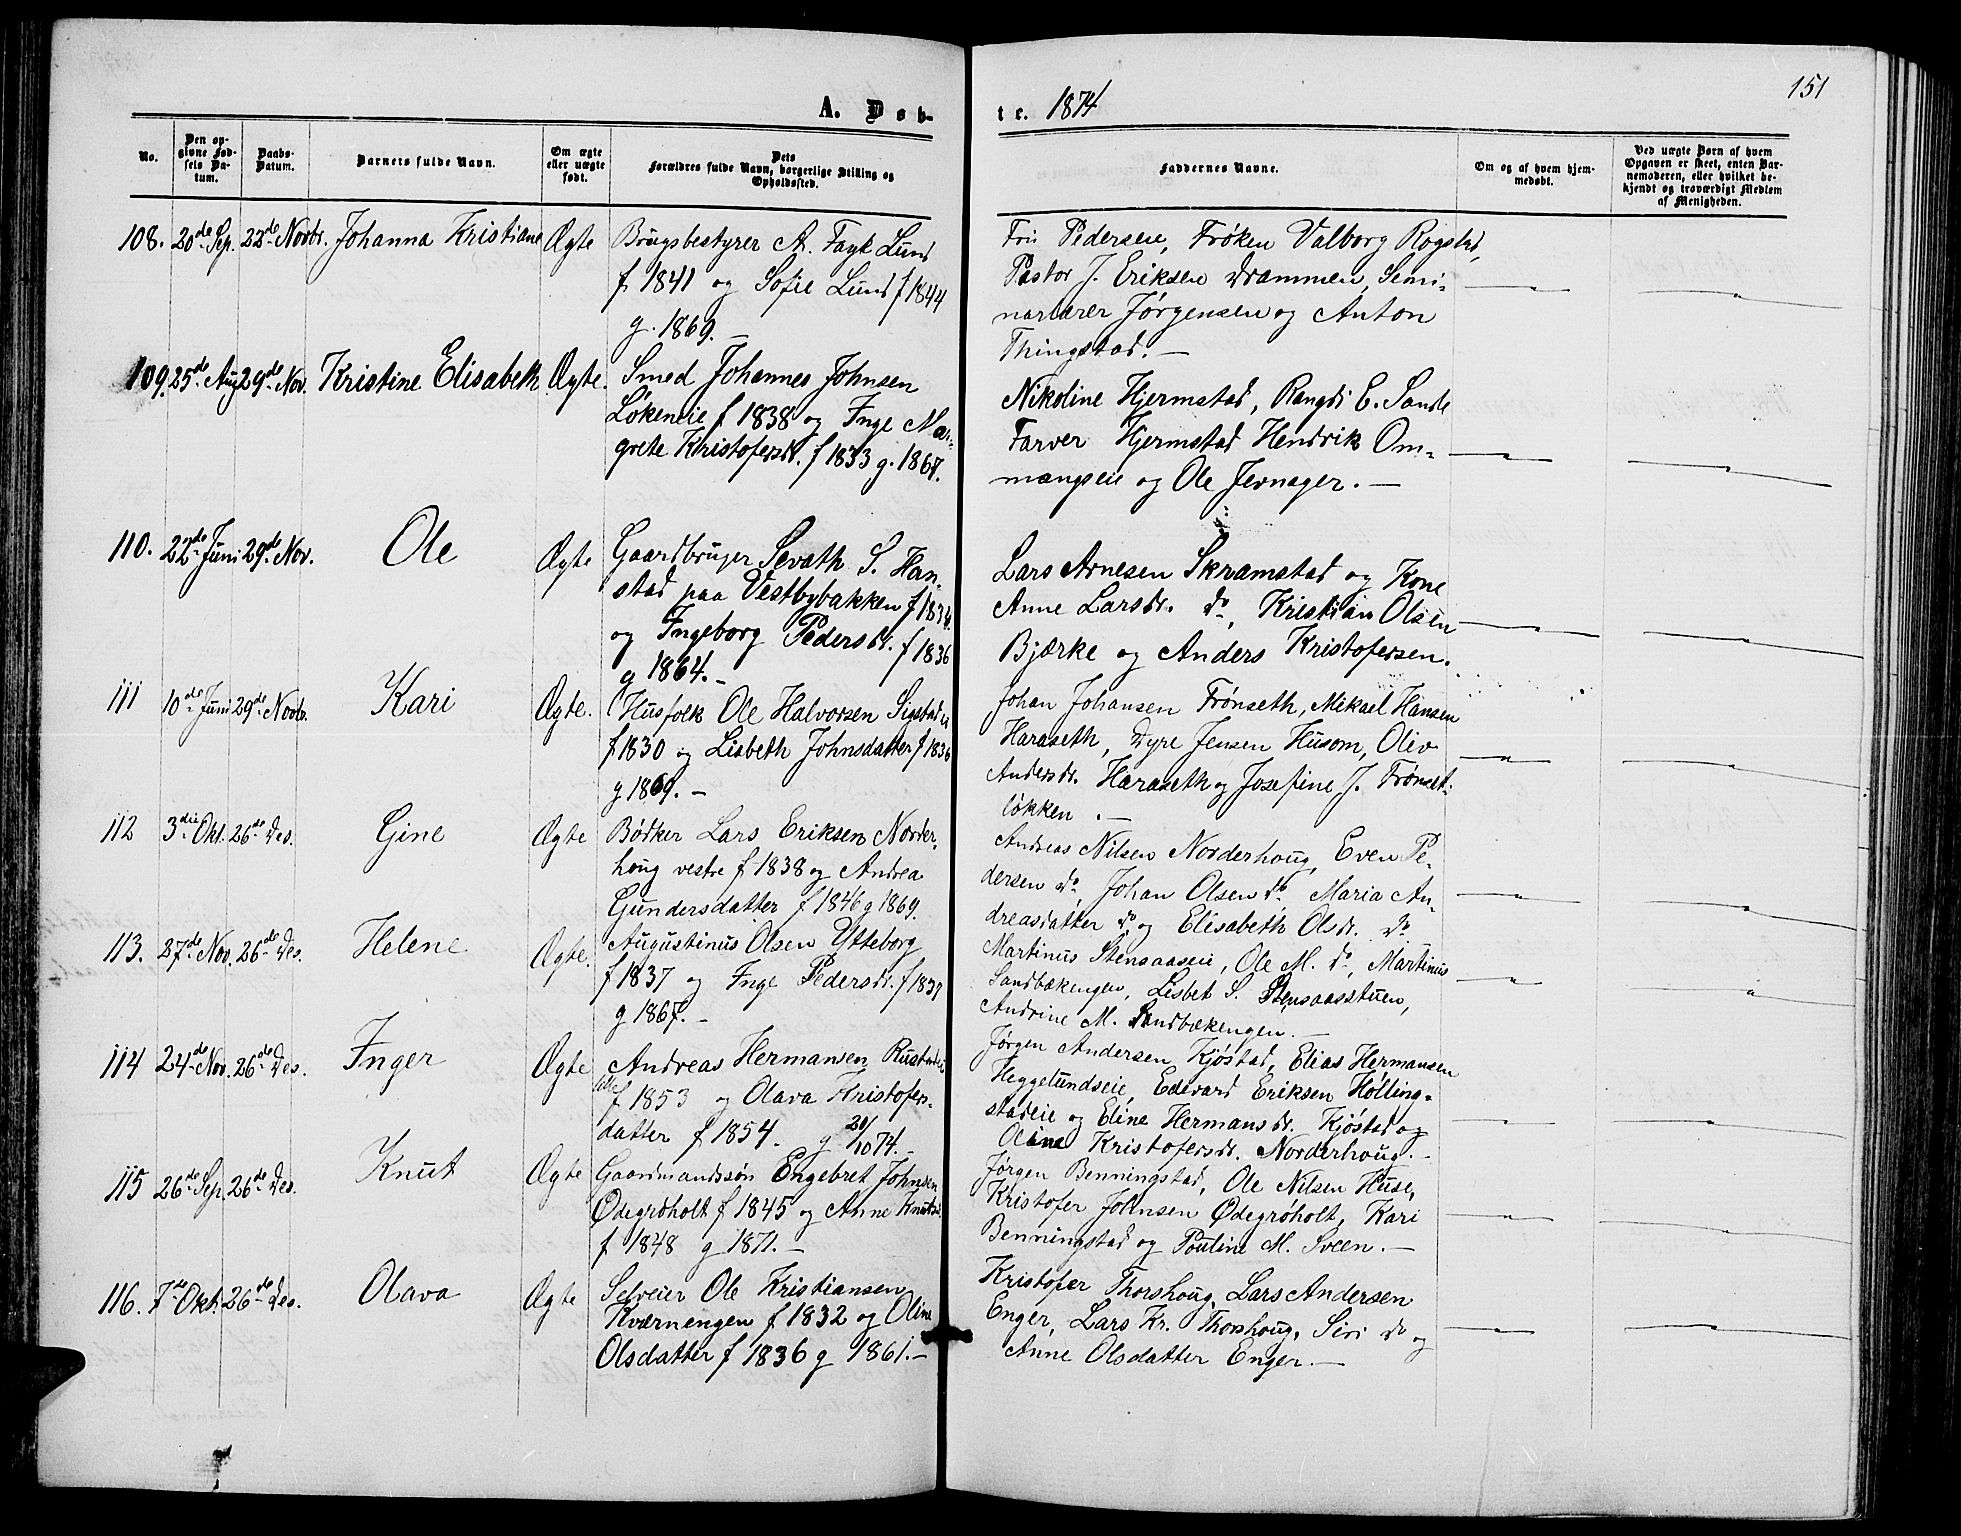 151
A. Døb-
te. 1874
No.
Den op-
givne Fød-
sels Da-
tum.
Daabs-
Datum.
Barnets fulde Navn.
Om ægte
eller uægte
født.
Dets
Forældres fulde Navn, borgerlige Stilling og
Opholdssted.
Faddernes Navne.
Om og af hvem hjem-
medøbt.
Ved uægte Børn af hvem
Opgaven er skeet, enten Bar-
nemoderen, eller hvilket be-
kjendt og troværdigt Medlem
af Menigheden.
108. 20de Sep. 22de Novbr. Johanna Kristiane Ægte
Brugsbestyrer A. Fayk Lund
f 1841 og Sofie Lund f 1844
g. 1869. —
Fru Pedersen, Frøken Valborg Rogstad,
Pastor J. Eriksen Drammen, Semi-
narlærer Jørgensen og Anton
Thingstad. —
109. 25de Aug 29de Nov. Kristine Elisabeth Ægte.
Smed Johannes Johnsen
Løkeneie f 1838 og Inge Mar-
grete Kristofersdr. f 1833 g. 1867.
Nikoline Hjermstad, Rangdi E. Sande
Farver Hjermstad Hendrik Om-
mangseie og Ole Jevnager. —
110. 22de Juni 29de Nov. Ole Ægte
Gaardbruger Sevath S. Han-
stad paa Vestbybakken f 1834
og Ingeborg Pedersdr. f 1836
g 1864. —
Lars Arnesen Skramstad og Kone
Anne Larsdr. do, Kristian Olsen
Bjærke og Anders Kristofersen.
111 10de Juni 29de Novbr. Kari Ægte.
Husfolk Ole Halvorsen Sigstadei
f 1830 og Lisbeth Johnsdatter f 1836
g 1869. —
Johan Johansen Frønseth, Mikael Hansen
Haraseth, Dyre Jensen Husom, Oliv
Andersdr. Haraseth og Josefine J. Frønset-
løkken. —
112 3die Okt. 26de Des. Gine Ægte
Bødker Lars Eriksen Norder-
houg vestre f 1838 og Andrea
Gundersdatter f 1846 g 1869.
Andreas Nilsen Norderhoug, Even Pe-
dersen do, Johan Olsen do Maria An-
dreasdatter do, og Elisabeth Olsdr. do
113. 27de Nov. 26de Des. Helene Ægte.
Augustinus Olsen Ytteborg
f 1837 og Inge Pedersdr. f 1837
g 1867. —
Martinus Stensaaseie, Ole M. do, Martinus
Sandbækengen, Lisbet S. Stensaasstuen,
Andrine M. Sandbækengen. —
114 24de Nov. 26de Des. Inger Ægte
Andreas Hermansen Rustadeie
f 1853 og Olava Kristofers-
datter f 1854. g 20/10 74. —
Jørgen Andersen Kjøstad, Elias Hermansen
Heggelundseie, Edevard Eriksen Hølling-
stadeie og Eline Hermansdr. Kjøstad og
Oline Kristofersdr. Norderhoug. —
115 26de Sep. 26de Des. Knut Ægte
Gaardmandssøn Engebret Johnsen
Ødegrøholt f 1845 og Anne Knutsd.
f 1848 g 1871. —
Jørgen Benningstad, Ole Nilsen Huse,
Kristofer Johnsen Ødegrøholt, Kari
Benningstad og Pouline M. Sveen. —
116. 7de Okt. 26de Des. Olava Ægte
Selveier Ole Kristiansen
Kværnengen f 1832 og Oline
Olsdatter f 1836 g 1861. —
Kristofer Thorshoug, Lars Andersen
Enger, Lars Kr. Thorshoug, Siri do og
Anne Olsdatter Enger. —